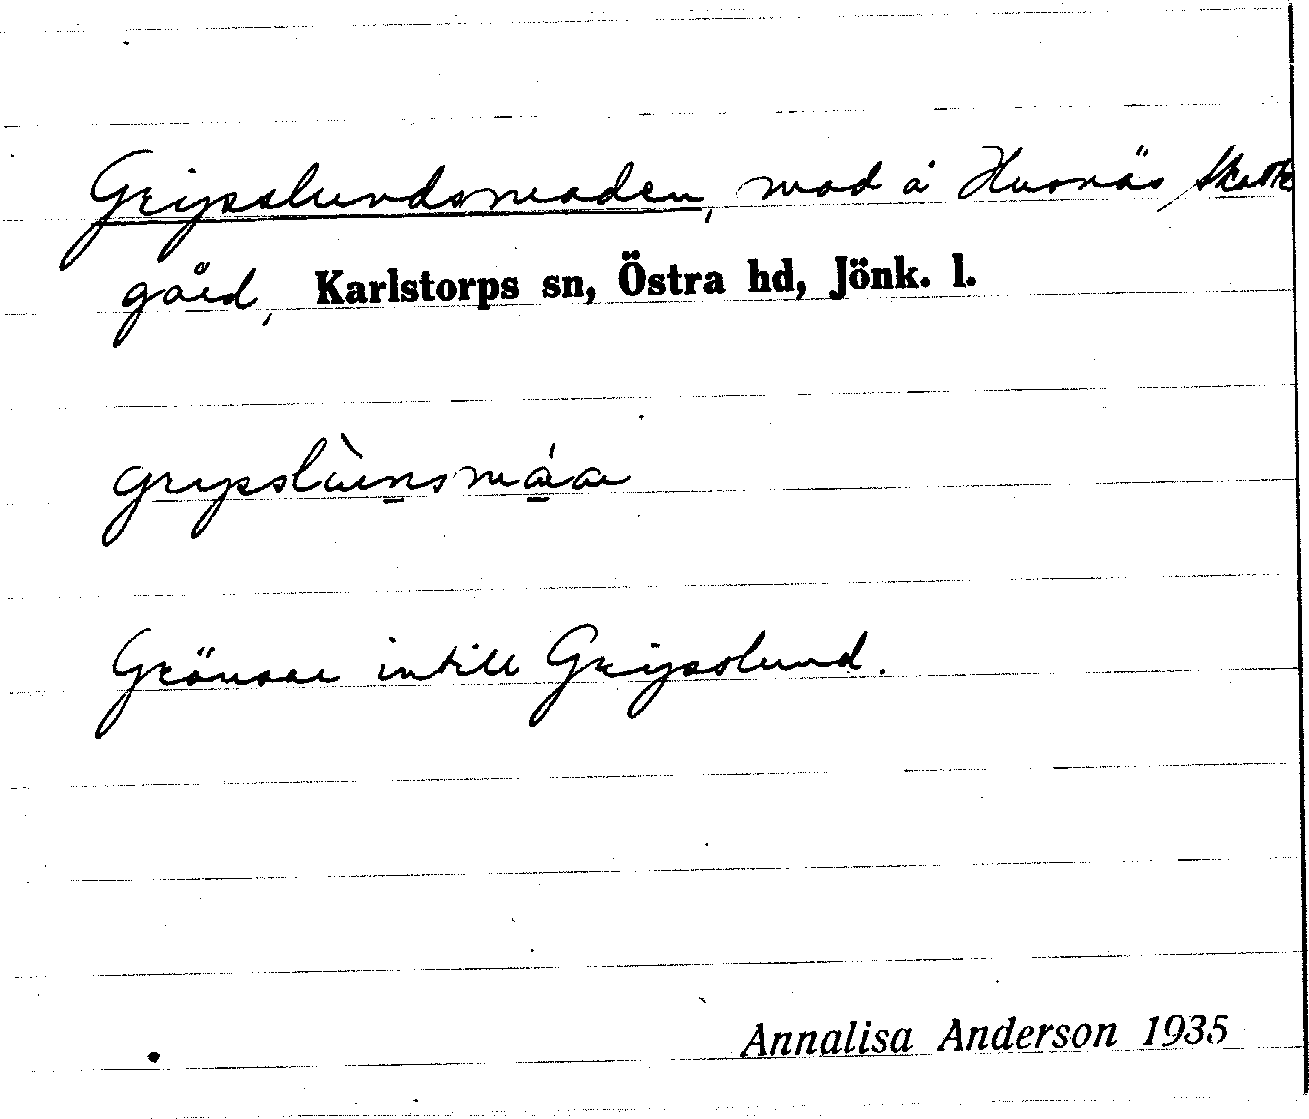 Gripslundsmaden, mad å Husnäs Skatte
gård, Karlstorps sn, Östra hd, Jönk. l.
gripslùnsmáa
Gränsar intill Gripslund.
Annalisa Anderson 1935